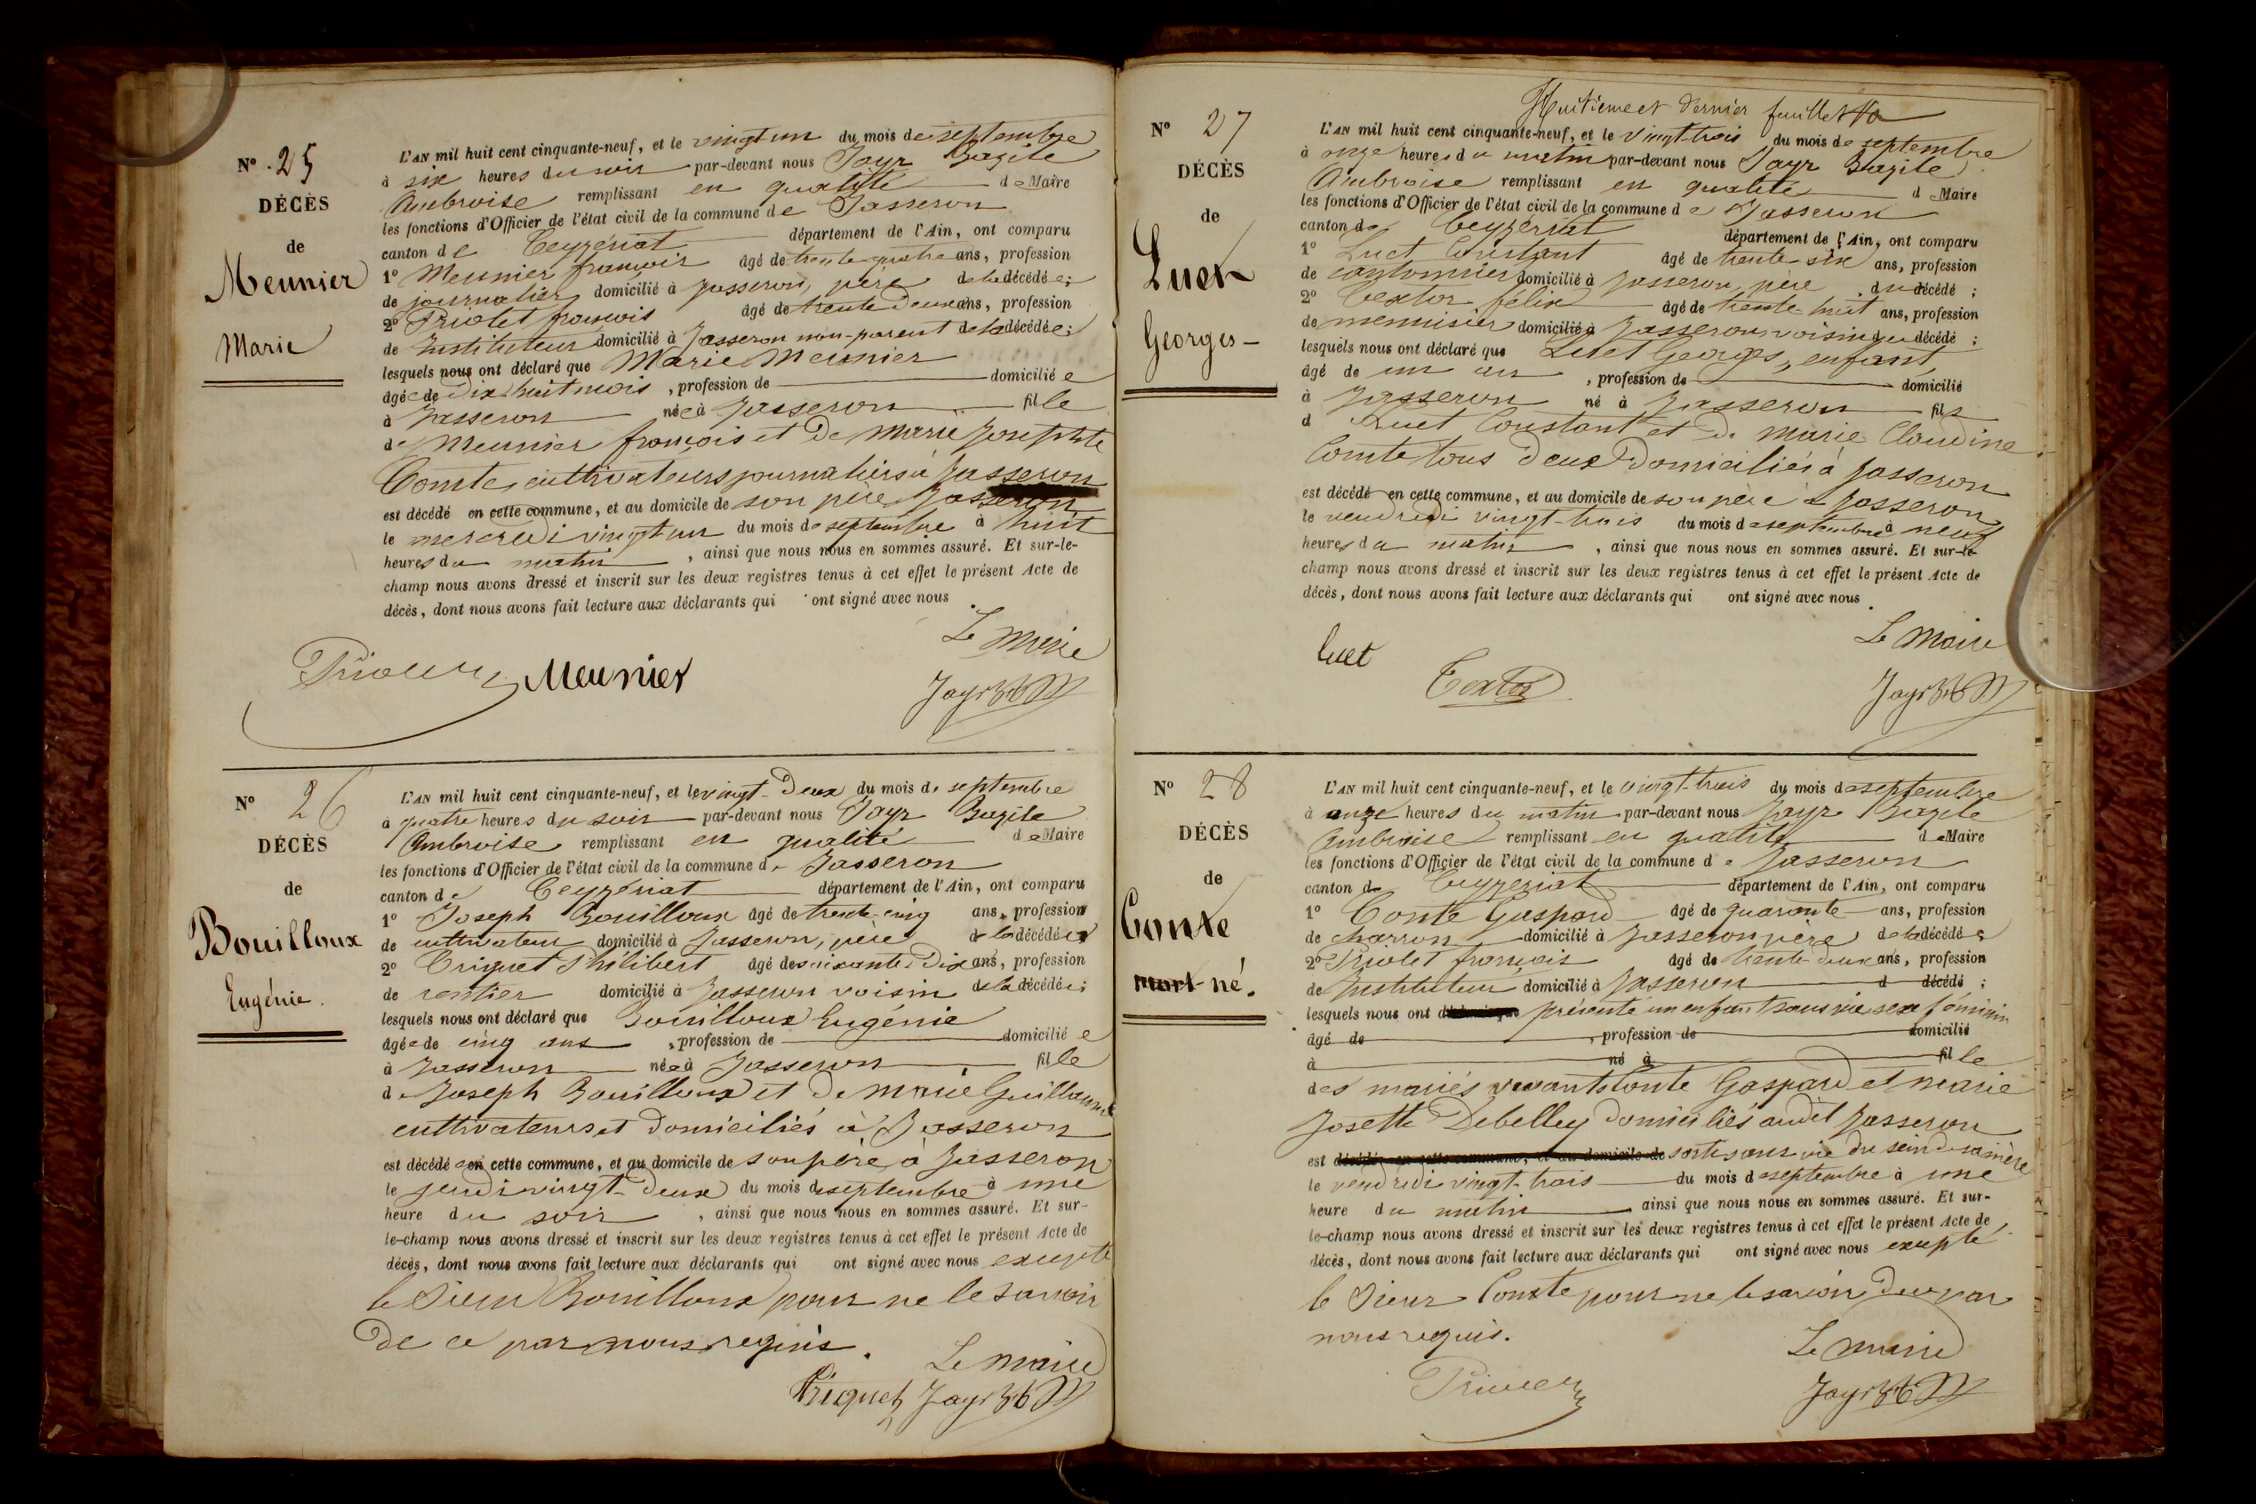 N° 25
DÉCÈS
de
Meunier
Marie
L'AN mil huit cent cinquante-neuf, et le vingt un du mois de septembre
à six heures du soir par-devant nous Jayr Bazile
Ambroise remplissant en qualité de Maire
les fonctions d'Officier de l'état civil de la commune de Jasseron
canton de Ceyzériat département de l'Ain, ont comparu
1° Meunier françois âgé de trente quatre ans, profession
de journalier domicilié à Jasseron, père de la décédée;
2° Priolet françois âgé de trente deux ans, profession
de Instituteur domicilié à Jasseron non-parent de la décédée;
lesquels nous ont déclaré que Marie Meunier
âgée de dix huit mois, profession de domiciliée
à Jasseron née à Jasseron fille
de Meunier françois et de Marie Josephte
Comte, cultivateurs journaliers à Jasseron
est décédé en cette commune, et au domicile de son père Jasseron
le mercredi vingt un du mois de septembre à huit
heures du matin, ainsi que nous nous en sommes assuré. Et sur-le-
champ nous avons dressé et inscrit sur les deux registres tenus à cet effet le présent Acte de
décès, dont nous avons fait lecture aux déclarants qui ont signé avec nous.
Le Maire
Meunier
Jayr
N° 26
DÉCÈS
de
Bouilloux
Eugénie.
L'AN mil huit cent cinquante-neuf, et le vingt-deux du mois de septembre
à quatre heures du soir par-devant nous Jayr Bazile
Ambroise remplissant en qualité de Maire
les fonctions d'Officier de l'état civil de la commune de Jasseron
canton de Ceyzériat département de l'Ain, ont comparu
1° Joseph Bouilloux âgé de trente-cinq ans, profession
de cultivateur domicilié à Jasseron, père de la décédée
2° Criquet Philibert âgé de soixante-dix ans, profession
de rentier domicilié à Jasseron voisin de la décédée;
lesquels nous ont déclaré que Bouilloux Eugénie
âgée de cinq ans, profession de domiciliée
à Jasseron née à Jasseron fille
de Joseph Bouilloux et de Marie Guillaume
cultivateurs et domiciliés à Jasseron
est décédée en cette commune, et au domicile de son père, à Jasseron
le jeudi vingt-deux du mois de septembre à une
heure du soir, ainsi que nous nous en sommes assuré. Et sur-
le-champ nous avons dressé et inscrit sur les deux registres tenus à cet effet le présent Acte de
décès, dont nous avons fait lecture aux déclarants qui ont signé avec nous excepté
le Sieur Bouilloux pour ne le savoir
de ce par nous requis.
Le Maire
Criquet Jayr
Huitième et dernier feuillet
N° 27
DÉCÈS
de
Luet
Georges
L'AN mil huit cent cinquante-neuf, et le vingt-trois du mois de septembre
à onze heures du matin par-devant nous Jayr Bazile
Ambroise remplissant en qualité de Maire
les fonctions d'Officier de l'état civil de la commune de Jasseron
canton de Ceyzériat département de l'Ain, ont comparu
1° Luet Constant âgé de trente-six ans, profession
de cantonnier domicilié à Jasseron, père du décédé;
2° Textor félix âgé de trente-huit ans, profession
de menuisier domicilié à Jasseron voisin du décédé;
lesquels nous ont déclaré que Luet Georges, enfant,
âgé de un an, profession de domicilié
à Jasseron né à Jasseron fils
d Luet Constant et de Marie Claudine
Comte tous deux domiciliés à Jasseron
est décédé en cette commune, et au domicile de son père à Jasseron
le vendredi vingt-trois du mois de septembre à neuf
heures du matin, ainsi que nous nous en sommes assuré. Et sur-le-
champ nous avons dressé et inscrit sur les deux registres tenus à cet effet le présent Acte de
décès, dont nous avons fait lecture aux déclarants qui ont signé avec nous.
Le Maire
Luet
Textor
Jayr
N° 28
DÉCÈS
de
Conte
mort-né.
L'AN mil huit cent cinquante-neuf, et le vingt-trois du mois de septembre
à onze heures du matin par-devant nous Jayr Bazile
Ambroise remplissant en qualité de Maire
les fonctions d'Officier de l'état civil de la commune de Jasseron
canton de Ceyzériat département de l'Ain, ont comparu
1° Conte Gaspard âgé de quarante ans, profession
de charron domicilié à Jasseron père de la décédée
2° Priolet françois âgé de trente deux ans, profession
de Instituteur domicilié à Jasseron d décédé;
lesquels nous ont présenté un enfant sans vie sexe féminin
âgé de, profession de domicilié
à né à fille
des mariés vivants Conte Gaspard et Marie
Josette Debelley domiciliés audit Jasseron
est décédé, en cette commune, et au domicile de sorti sans vie du sein de sa mère
le vendredi vingt-trois du mois de septembre à une
heure du matin ainsi que nous nous en sommes assuré. Et sur-
le-champ nous avons dressé et inscrit sur les deux registres tenus à cet effet le présent Acte de
décès, dont nous avons fait lecture aux déclarants qui ont signé avec nous excepté
le Sieur Conte pour ne le savoir de ce par
nous requis.
Le Maire
Jayr